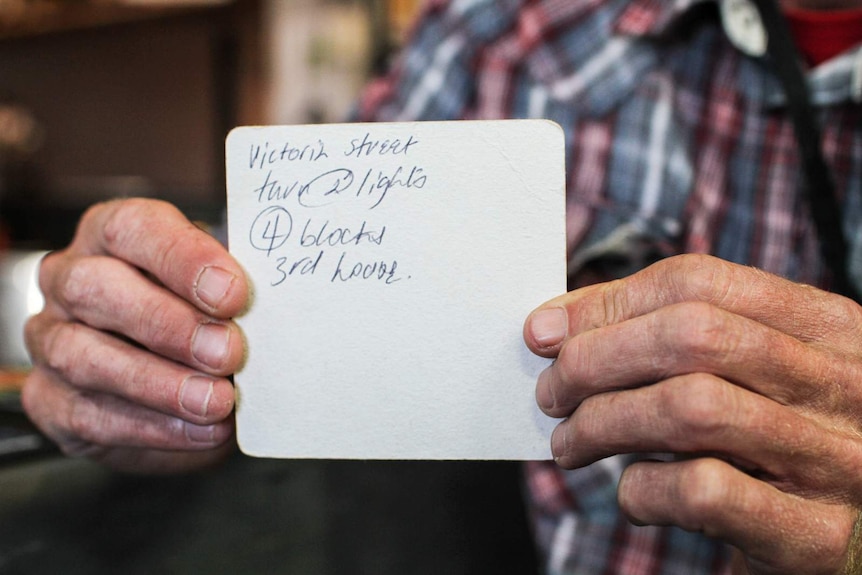 Victoria street
turn 2 lights
4 blocks
3rd house.